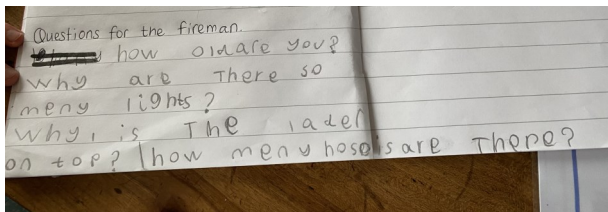 Questions for the fireman.
how old are you?
Why are There so
meny lights?
Why, is The lader
on top? how meny hosois are There?